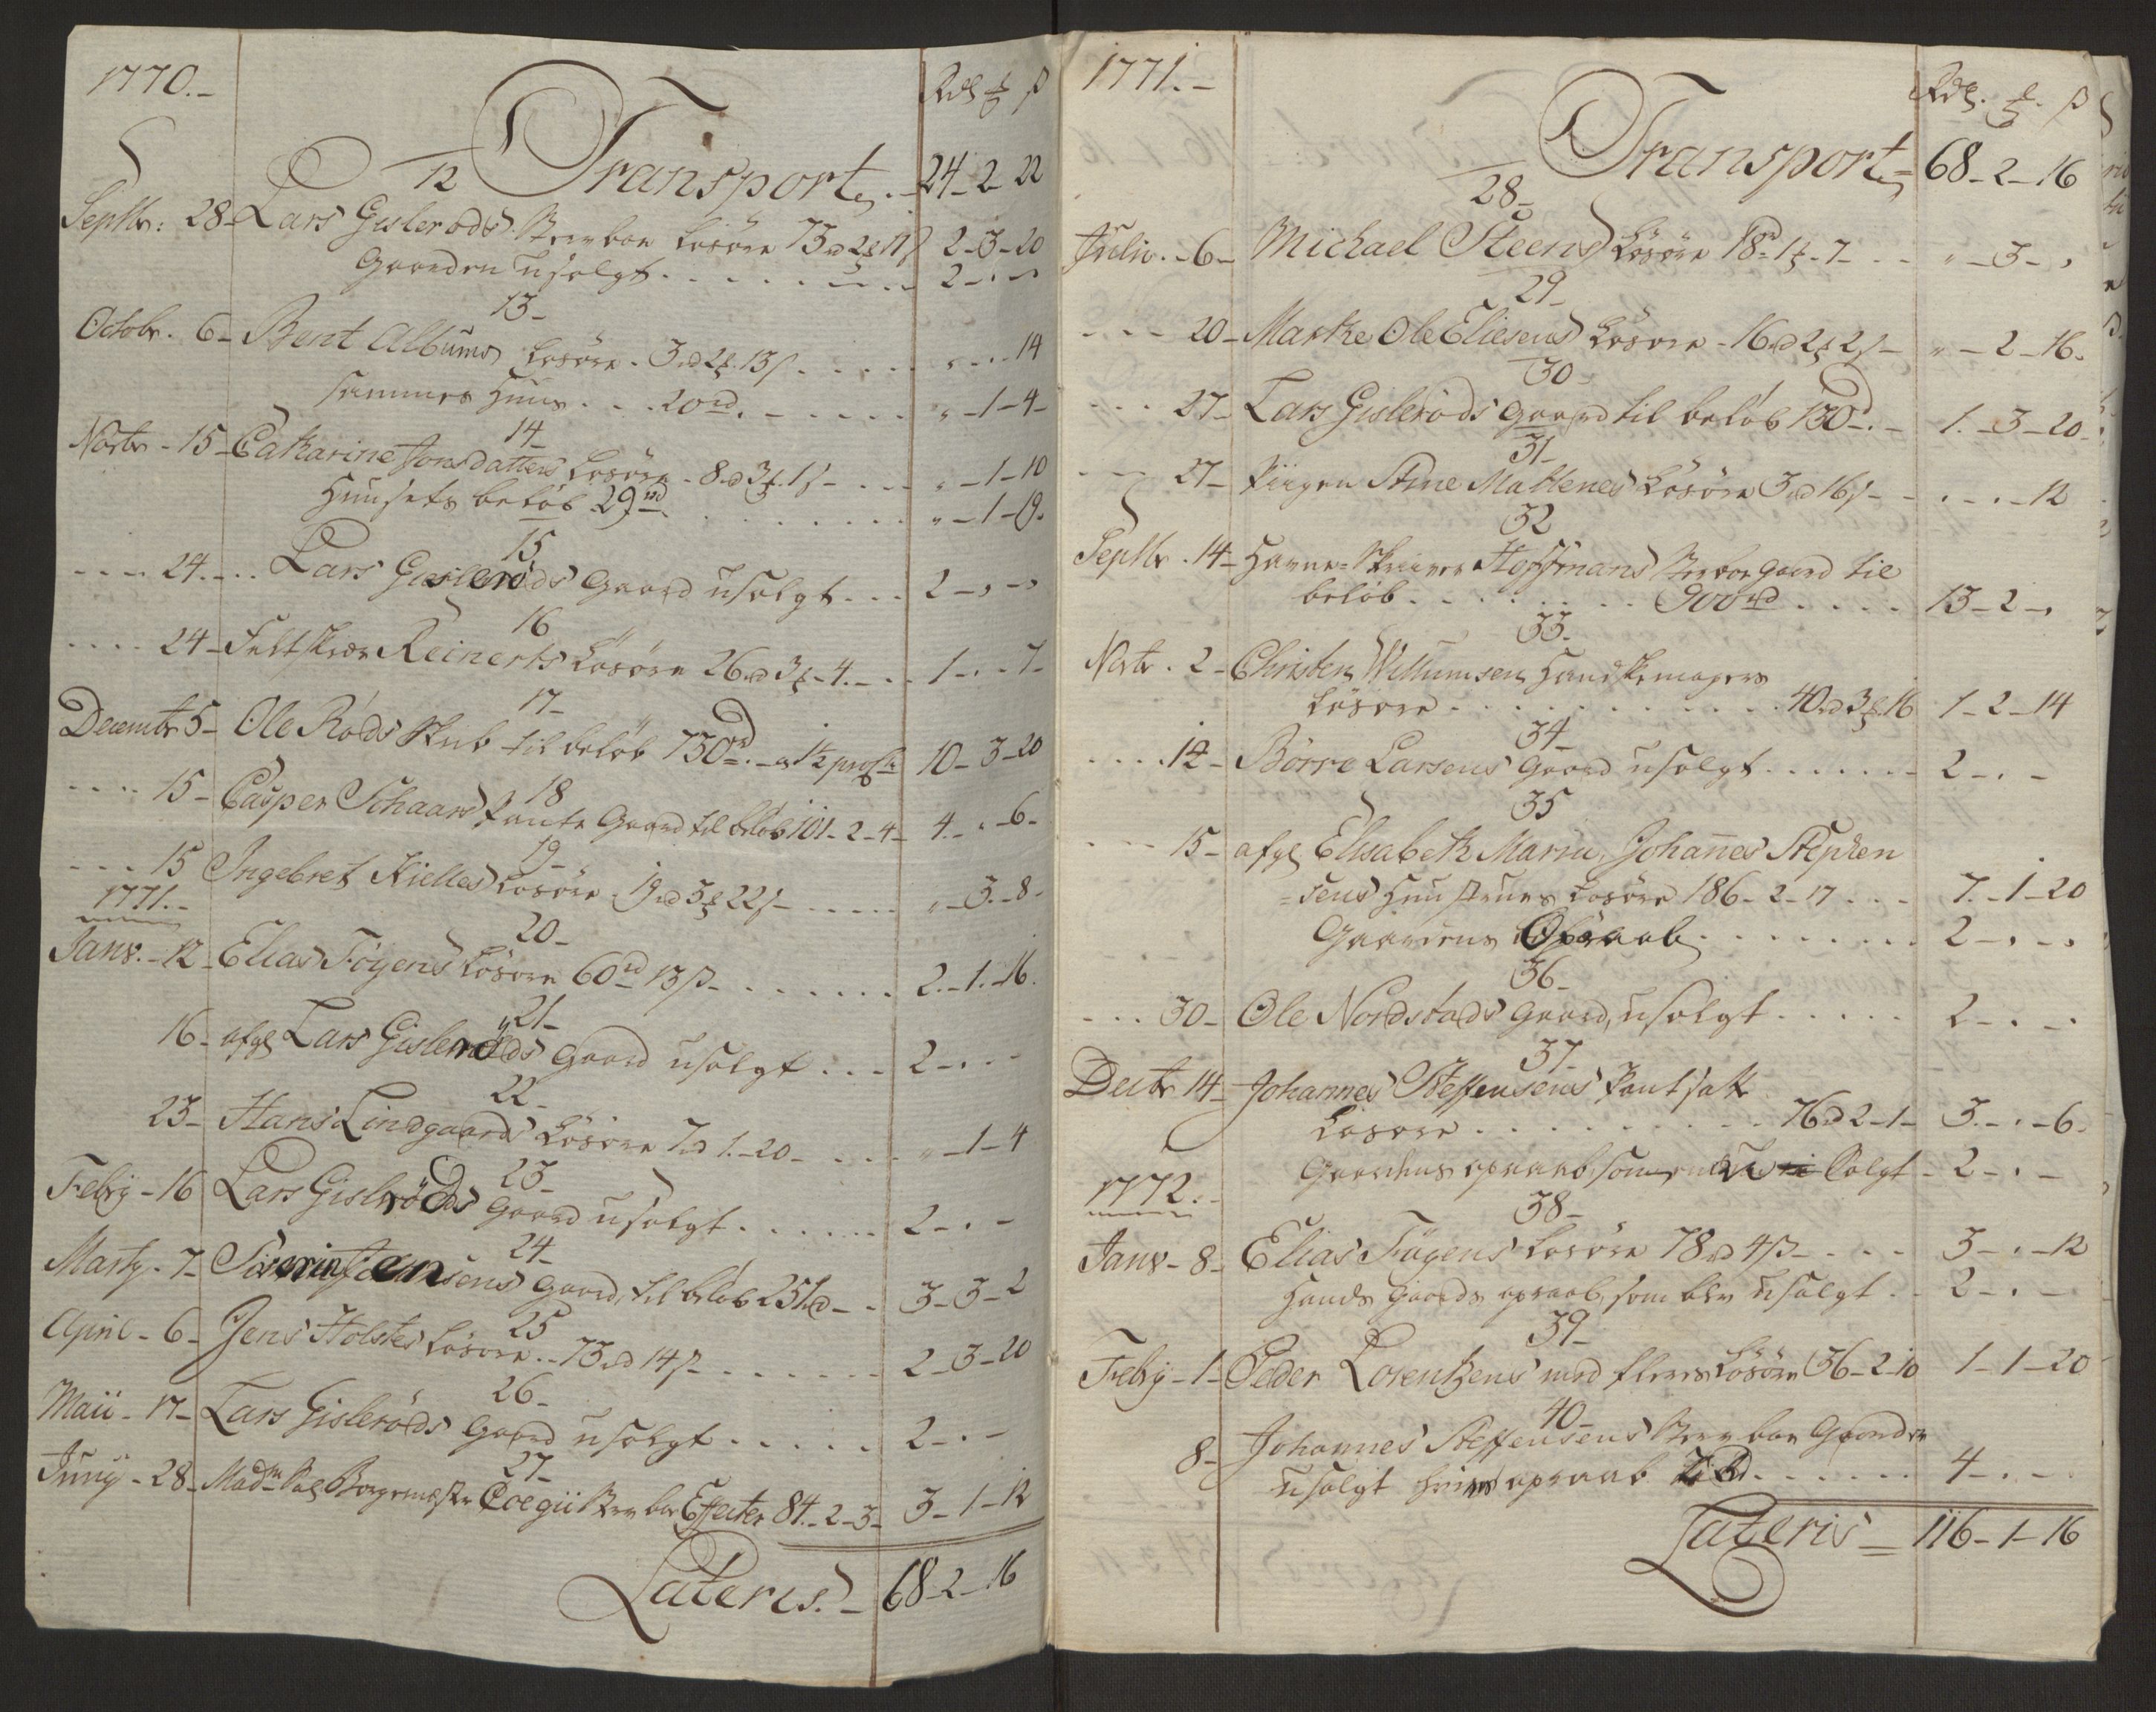 1770.-
Rdl ₰ ß
Transport. - 24- 2- 22
12
Septbr: 28- Lars Gislerøds Sterrboe Løsøre 73rd 2₰ 17ß 2-3-20
Gaarden usolgt . . . . . . . 2-.-
13-
Octobr. 6- Bent Albums Løsøre. 3rd 2₰. 13ß . . . . . " . . 14
sammes Huus . . . 20rd. . . . . . " -1-4-
14-
Novbr - 15- Catharine Jonsdatters Løsøre - 8rd 3₰. 1ß - . . . " -1-10
Huusets beløb 29rd. . . . . . . . . " -1-19.
15
- - - 24. . . Lars Gislerøds Gaard usolgt . . . 2-,-,
16
. . . . 24- Feltskiær Reinerts Løsøre 26rd 3₰-4. - . . 1-. . 7-
17-
Decembr 5- Ole Røds Skib til beløb 730rd. - a 1½ proCto 10-3-20
18
. . . . 15- Casper Schaars Pante Gaard til beløb 101-2-4- 4. . -6-
19-
- - - 15 Ingebret Kielles Løsøre. 19rd 3₰ 22ß - . . . . " -3. -8-
1771.-
20-
Janv. - 12- Elias Føyens Løsøre 60rd 13ß - . . . . . . . 2. -1. -16.
21-
16- afg Lars Gislerøds Gaard usolgt . . . 2-. . -
22-
23- Hans Lindgaards Løsøre 7rd 1. -20- . . . . " -1-4
23-
Febrij - 16 Lars Gislerøds Gaard usolgt . . . . . . 2-. -
24-
Martij - 7- Gaard, til beløb 251rd - . 3-3-2
25
April - 6- Jens Holstes Løsøre. . 73rd 14ß - . . . . . . 2-3-20
26-
Maii - 17- Lars Gislerøds Gaard usolgt . . . . . 2-. -
27-
Junij - 28- Madme Borgemester Coegii Sterrboe Effecter 84. -2-3- 3-1-12
Lateris. - 68-2-16
1771. -
Rdl. ₰. ß
Transport = 68-2-16
28-
Julii. - 6- Michael Steens Løsøre 18rd-1₰-7- . . " -3-,
29-
- - - 20- Marthe Ole Eliesens Løsøre - 16rd 2₰ 2ß - " -2-16.
30-
. . . 27- Lars Gislerøds Gaard til beløb 130rd. - 1. -3-20-
31-
- - 27- Pigen Stine Mallenes Løsøre 3rd 16ß - - . - . -12
32
Septbr. 14- Havne-Skriver Hoffmans Sterrboe Gaard til
beløb . . . . . . . . 900rd . . . . 13-2-,
33-
Novbr. 2- Christen Willumsen Handskemagers
Løsøre . . . . . . . . . . . 40rd 3₰. 16 1-2-14
34-
. . . . 14- Børre Larsens Gaard usolgt . . . . . . - 2-. -
35
- - - 15- afg Elisabeth Maria, Johañes Stephen
=sens Huustrues Løsøre 186-2-17 . . . 7. -1-20
Gaardens Opraab . . . . . . . . . 2-. -.
36-
- . . . 30- Ole Nordstads Gaard, usolgt . . . . . 2-. -.
37-
Decbr 14- Johannes Steffensens Pantsatte
Løsøre . . . . . . . . . . 76rd 2-1- 3. -. -6.
Gaardens opraab, som solgt - 2-. -
1772. -
38-
Janv - 8- Elias Føyens Løsøre 78rd 4ß - . . . 3-. -12
Hands Gaards opraab, som blev usolgt . . 2-. -
39-
Febrij - 1- Peder Lorentzens med fleres Løsøre 36-2-10 1-1-20
40-
8- Johannes Steffensens Sterrboe Gaarden
usolgt opraab . . . . . . 4-. -
Lateris = 116-1-16